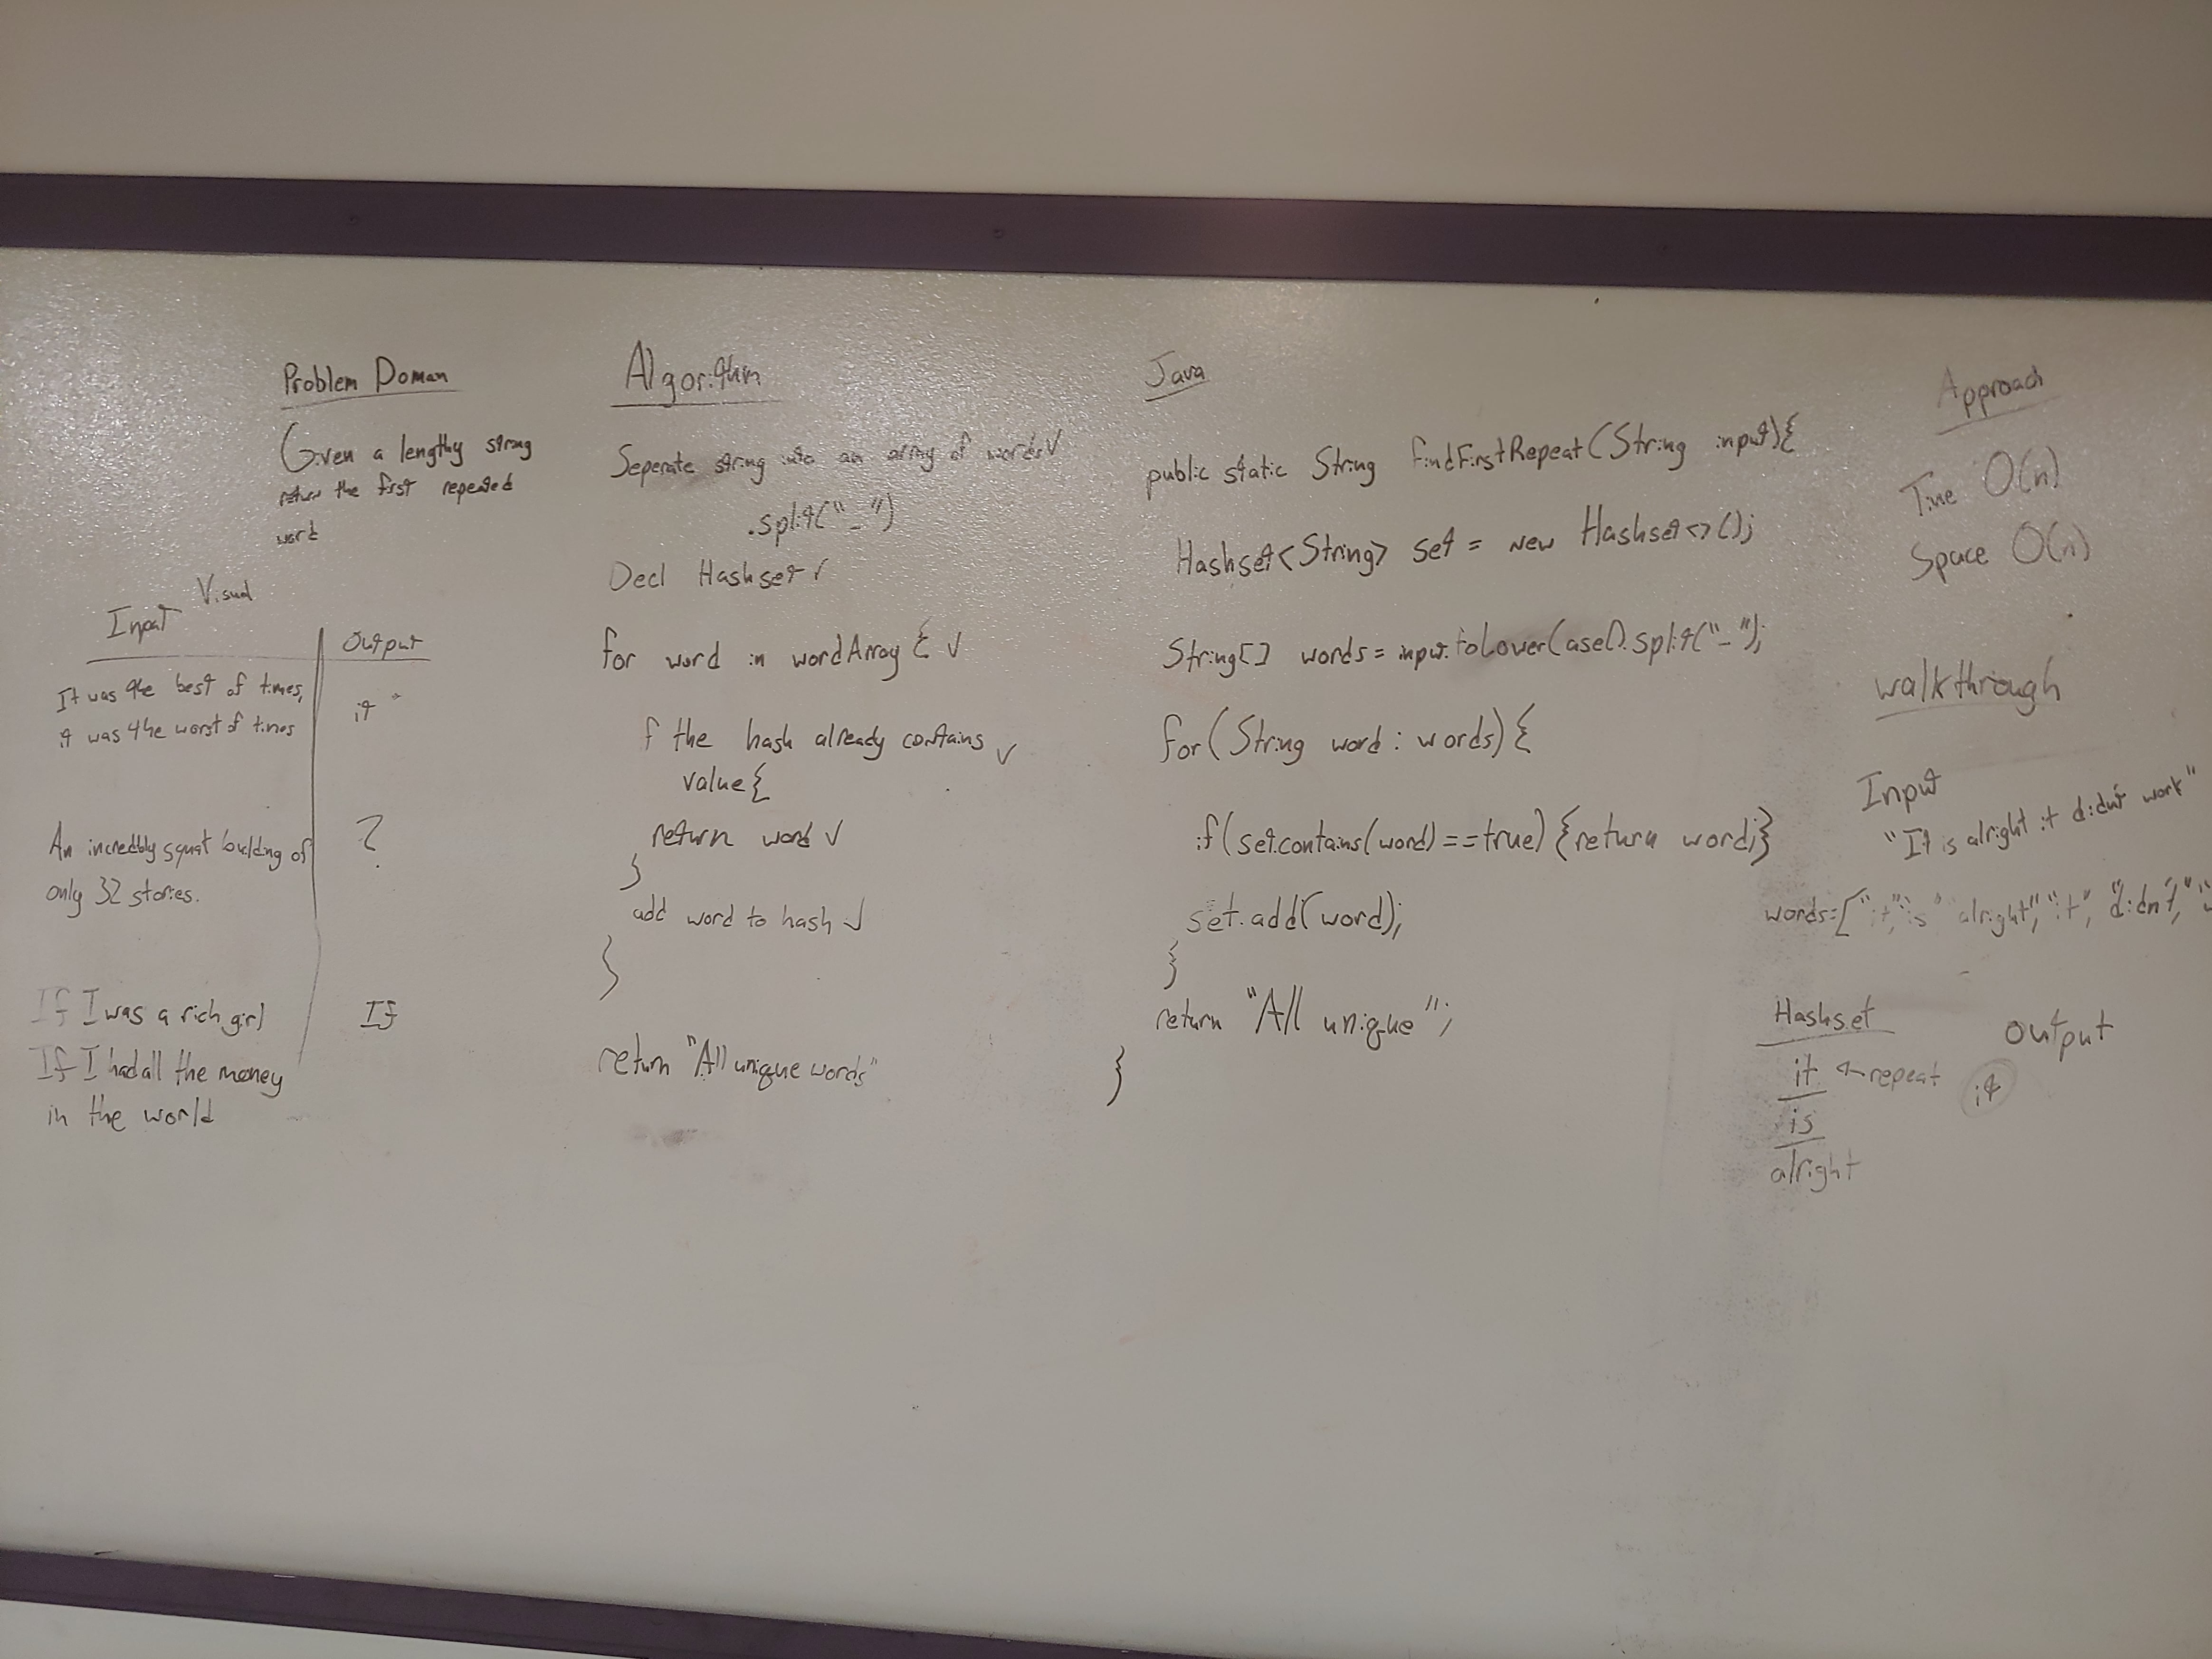 Problem Doman
Given a lengthy string
return the first repeated
word
Visual
Input
Output
It was the best of times,
it was the worst of times
it
An incredbly squat building of
only 32 stories.
?
If I was a rich girl
If I had all the money
in the world
If
Algorithm
Seperate string into an array of words ✓
.split("_")
Decl Hashset ✓
for word in wordArray { ✓
f the hash already contains ✓
value {
return word ✓
}
add word to hash ✓
}
return "All unique words"
Java
public static String findFirstRepeat(String input){
Hashset<String> set = new Hashset<>();
String[] words = input.toLowerCase().split("_");
for(String word : words) {
if(set.contains(word)==true) {return word;}
set.add(word);
}
return "All unique";
}
Approach
Time O(n)
Space O(n)
walkthrough
Input
"It is alright it didn't work"
words=["it","is" alright", "it", "didn't,"
Hashset
it ← repeat
is
alright
output
it